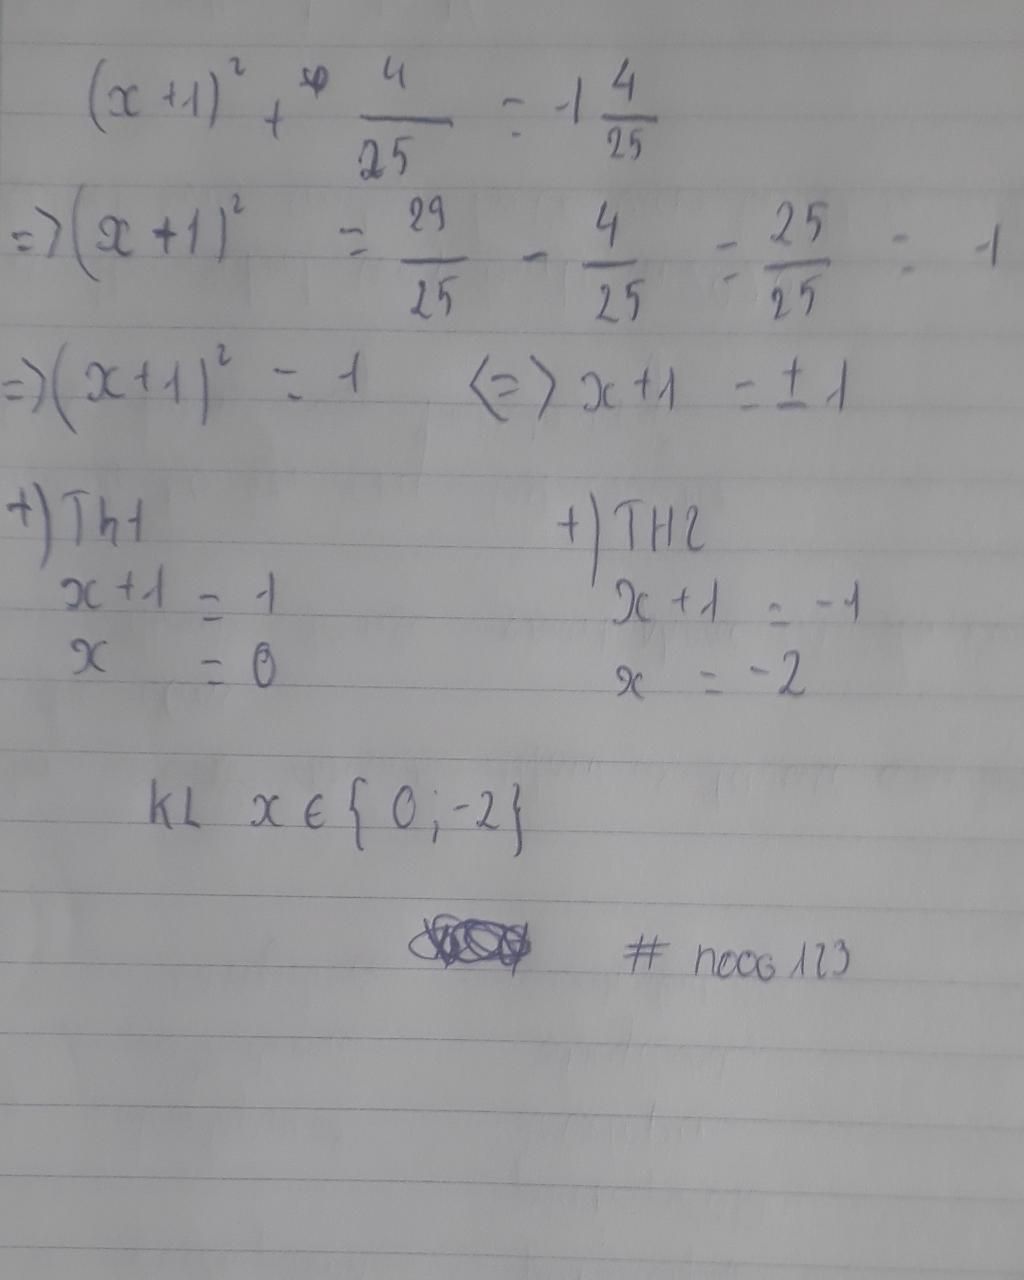 (x+1)² + 4/25 = 1 4/25
=> (x+1)² = 29/25 - 4/25 = 25/25 = 1
=> (x+1)² = 1 <=> x+1 = ± 1
+) Th1 +) TH2
x+1 = 1 x+1 = -1
x = 0 x = -2
KL x ∈ { 0; -2}
# noog 123